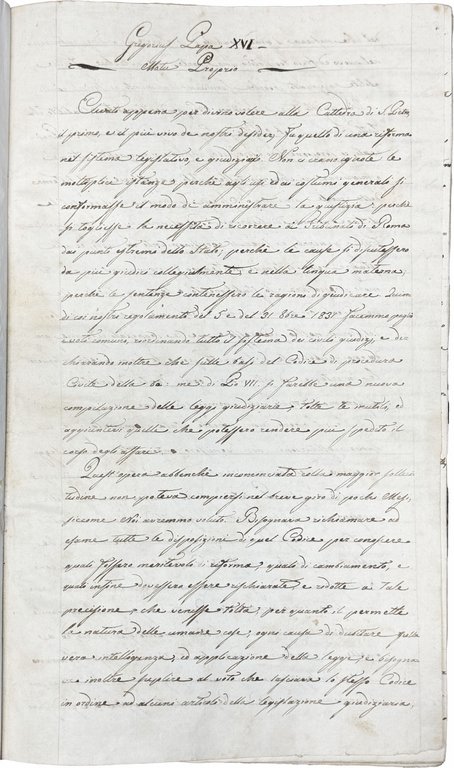 Gregorius Papa XVI
Motu Proprio
Elevati appena per divino volere alla Cattedra di S. Pietro,
il primo, e il più vivo de nostri desiderj fu quello di una riforma
nel sistema legislativo, e giudiziario. Non ci erano ignote le
molteplici istanze perchè agli usi ed ai costumi generali si
conformasse il modo di amministrare la giustizia; perchè
si togliesse la necessità di ricorrere ai Tribunali di Roma
dai punti estremi dello Stato; perchè le cause si discutessero
da più giudici collegialmente, e nella lingua materna,
perchè le sentenze contenessero le ragioni di giudicare. Quin
di coi nostri regolamenti del 5 e del 31. 8bre 1831 facemmo paghi
i voti comuni, riordinando tutto il sistema dei civili giudizj, e di
chiarando inoltre che sulle basi del Codice di procedura
Civile della sa: me: di Pio VII. si farebbe una nuova
compilazione delle leggi giudiziarie, tolte le inutili, ed
aggiuntevi quelle che potessero rendere più spedito il
corso degli affari.
Quest'opera abbenchè incominciata colla maggior solleci
tudine non poteva compiersi nel breve giro di pochi Mesi,
siccome Noi avremmo voluto. Bisognava richiamare ad
esame tutte le disposizioni di quel Codice per conoscere
quali fossero meritevoli di riforma, quali di cambiamento, e
quali infine dovessero essere rischiarate, e ridotte a tale
precisione, che venisse tolta, per quanto il permette
la natura delle umane cose, ogni causa di dubitare sulla
vera intelligenza, ed applicazione della legge; e bisogna
va inoltre supplire al voto che lasciava lo stesso Codice
in ordine ad alcuni articoli della legislazione giudiziaria,